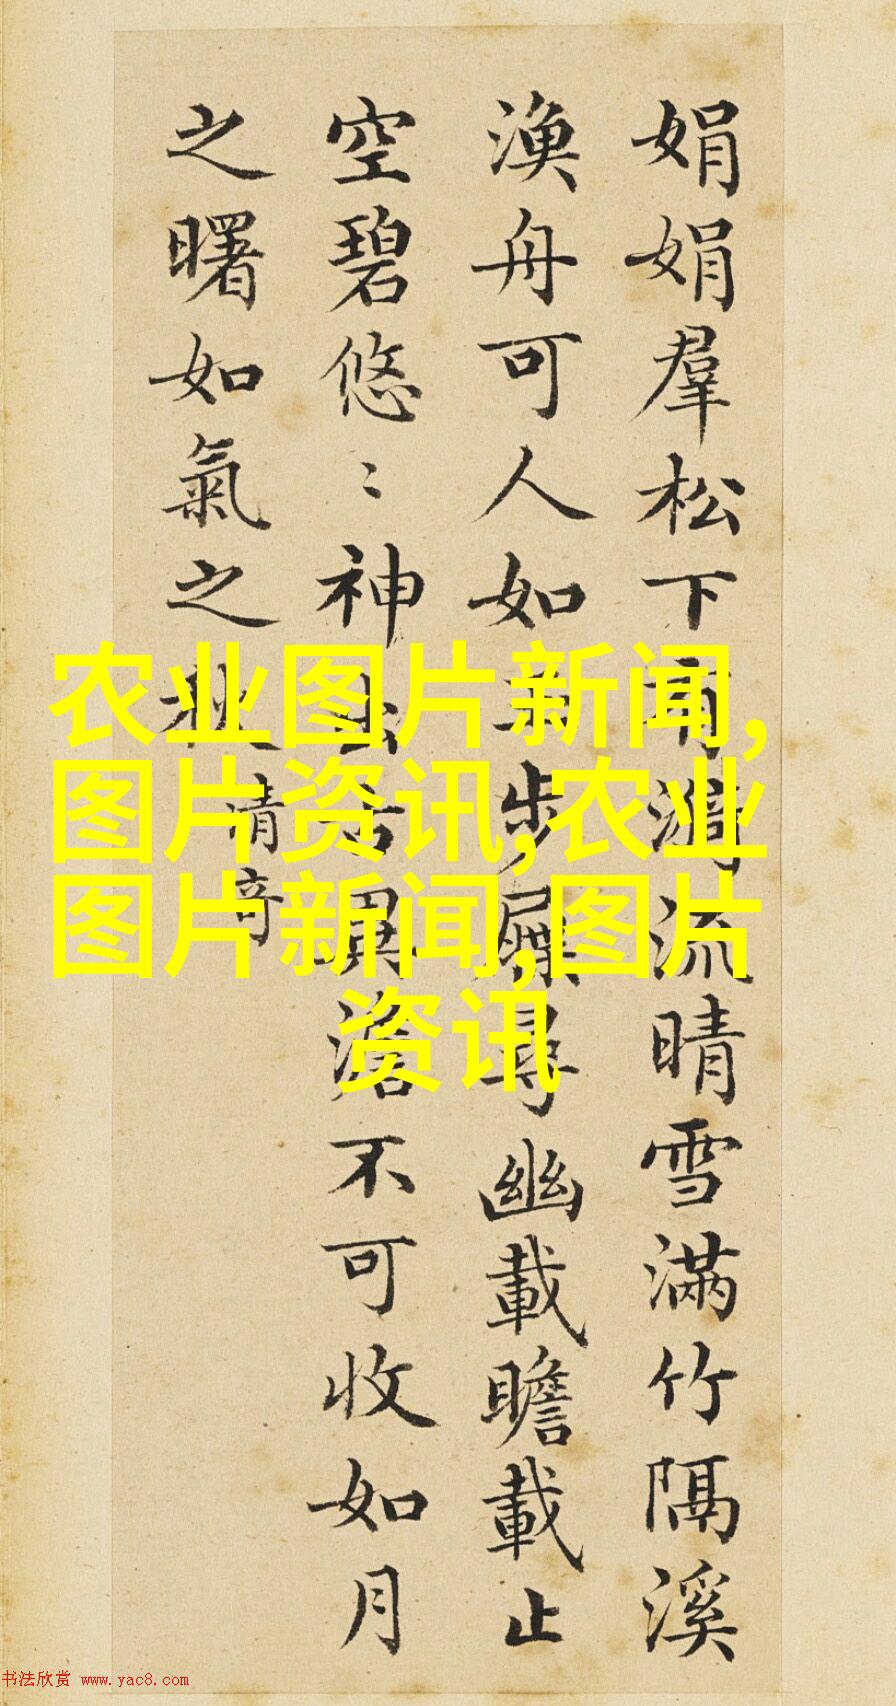 娟娟羣松下有漪流晴雪滿竹隔溪
渔舟可人如玉步屧尋幽載瞻載止
空碧悠〻神出古異澹不可收如月
之曙如氣之秋清奇
农业图片新闻,
图片资讯,农业
图片新闻,图片
资讯
书法欣赏 www.yac8.com